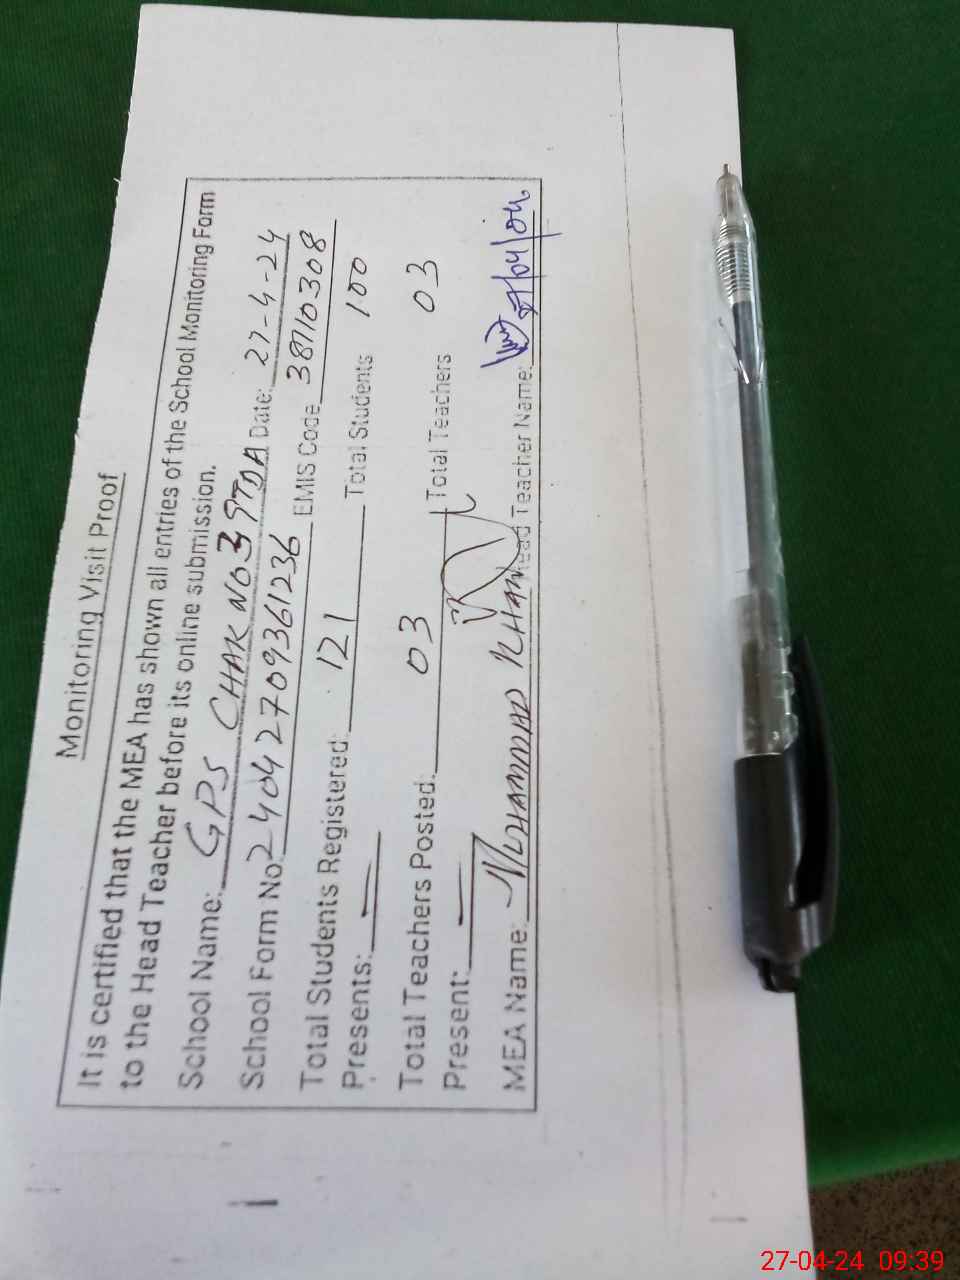 Monitoring Visit Proof
It is certified that the MEA has shown all entries of the School Monitoring Form
to the Head Teacher before its online submission.
School Name: GPS CHAK NO 39TDA Date: 27-4-24
School Form No 24042709361236 EMIS Code 38710308
Total Students Registered: 121 Total Students 100
Presents:
Total Teachers Posted: 03 Total Teachers 03
Present:
MEA Name: MUHAMMAD KHAN Head Teacher Name:
27-04-24 09:39